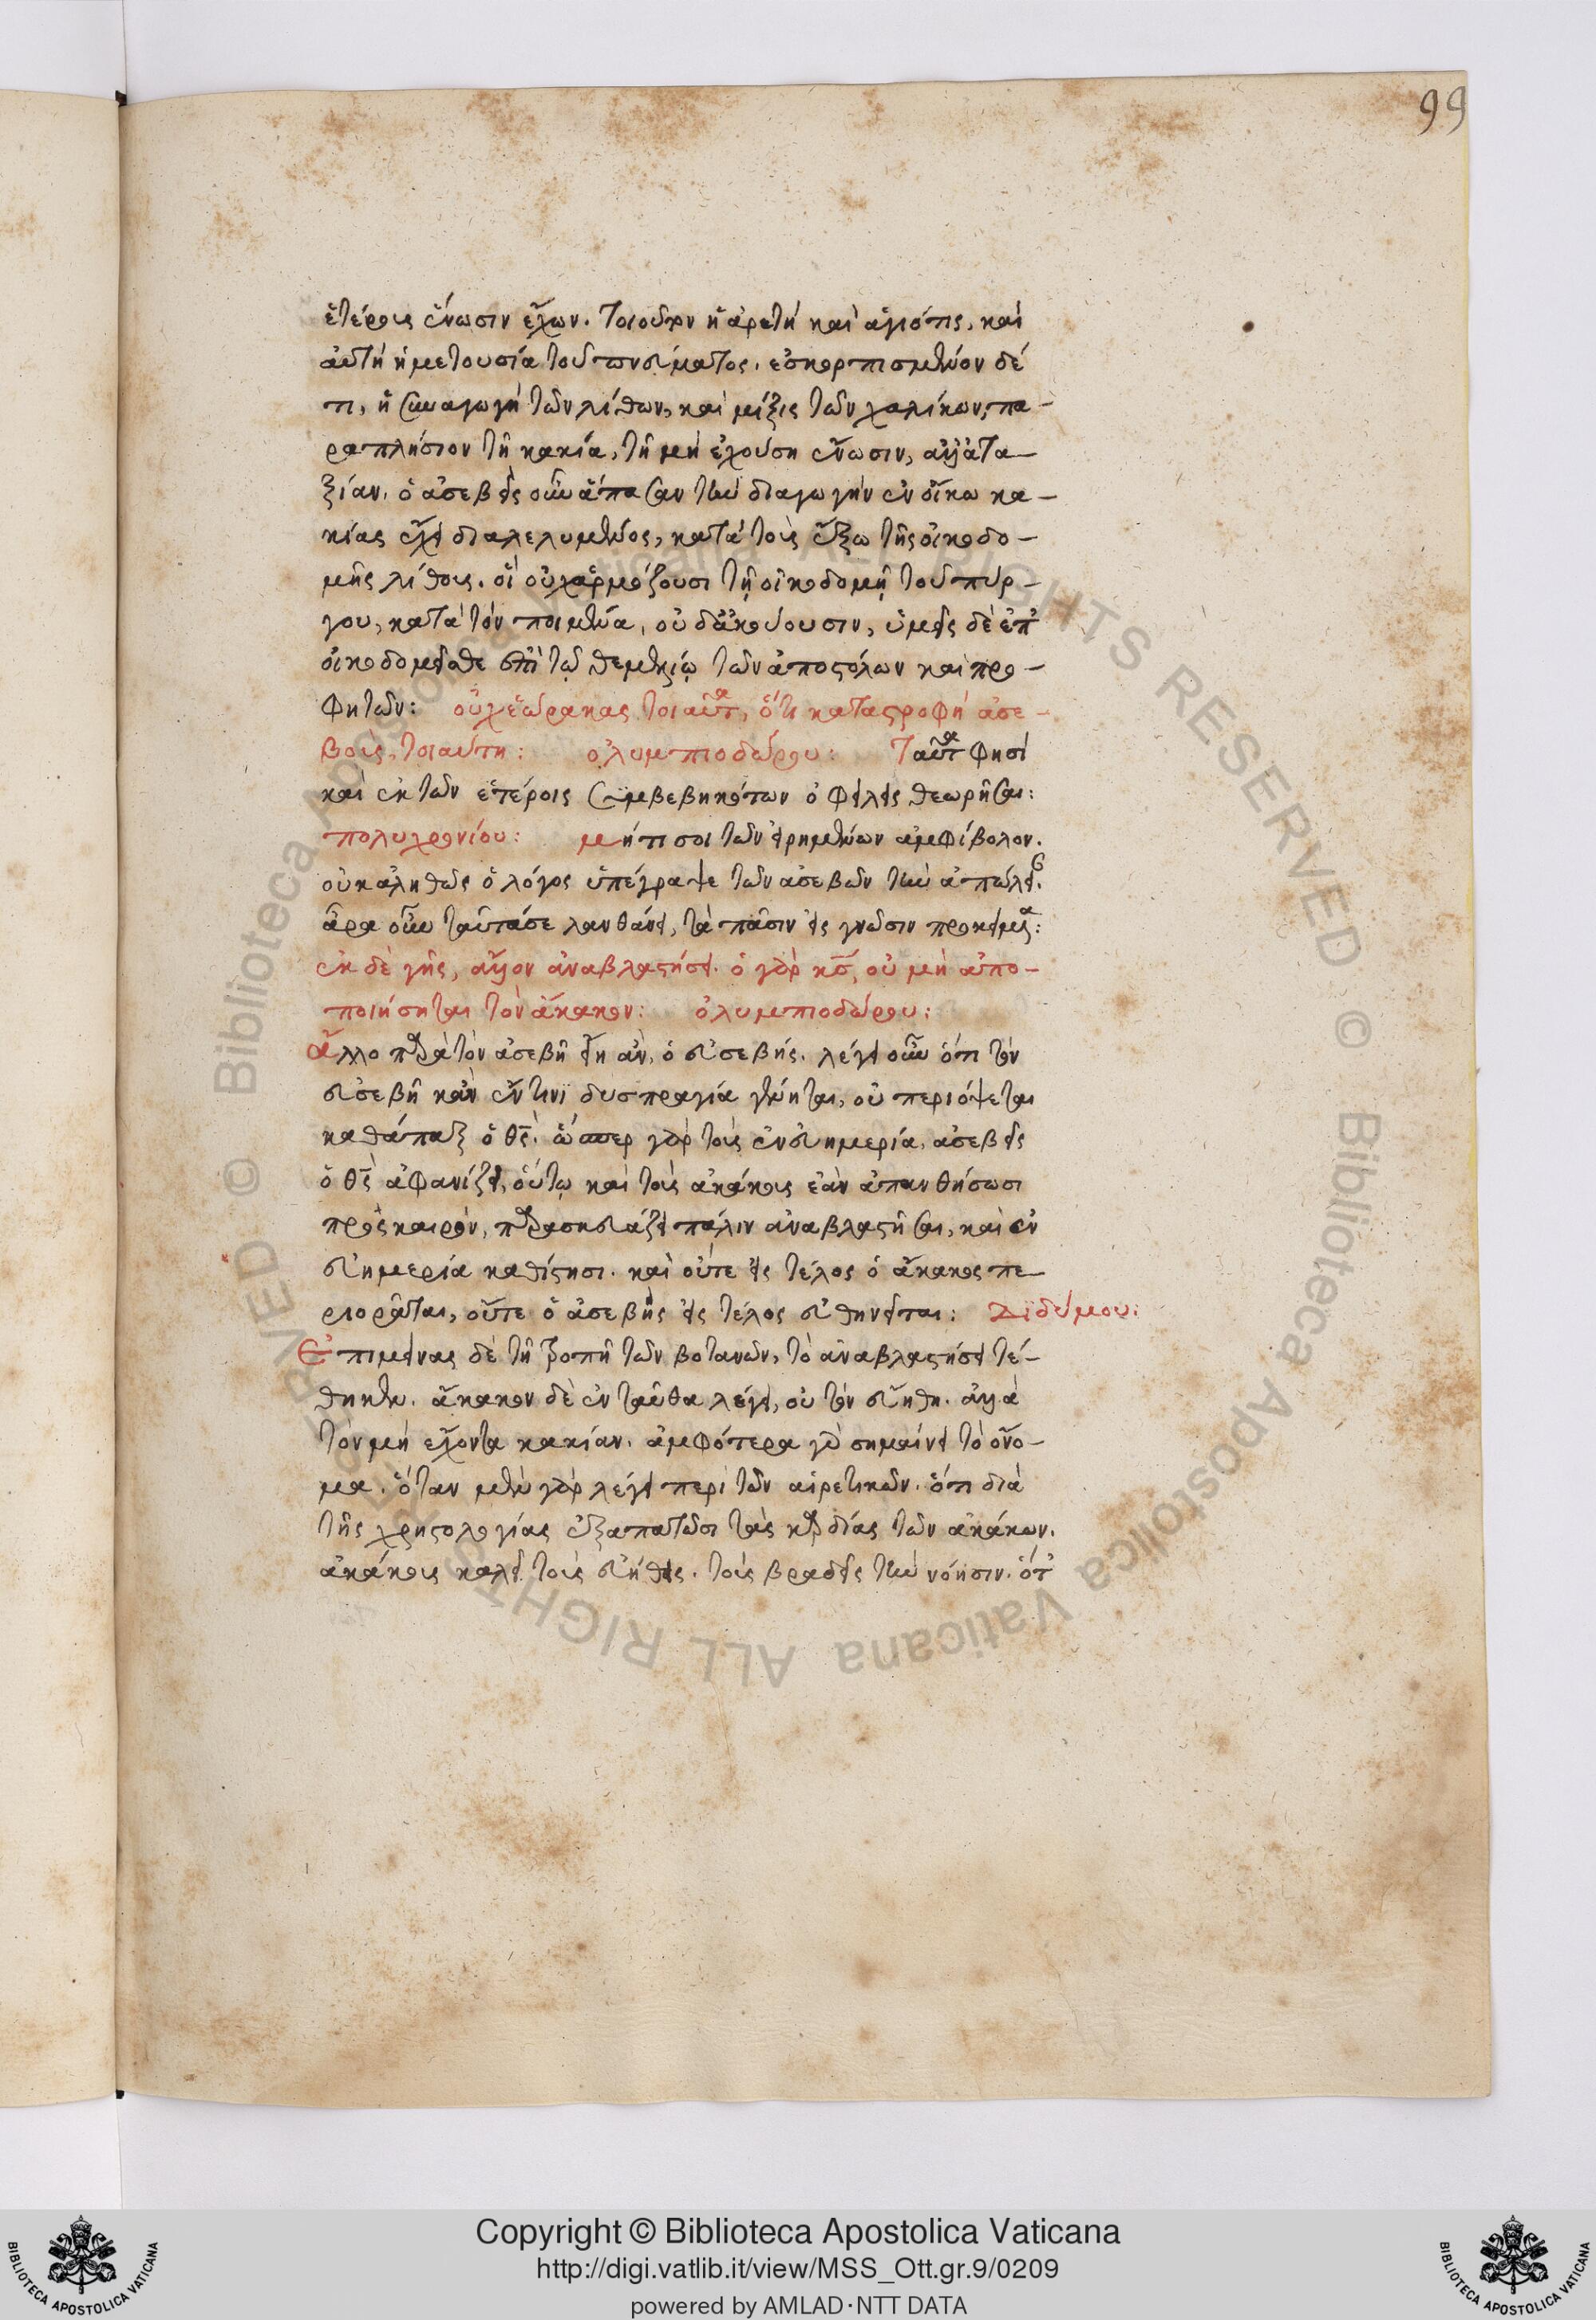 99
ἑτέροις ἕνωσιν ἔχων. τοιοῦτον ἡ ἀρετὴ καὶ ἁγιότης, καὶ
αὐτὴ ἡ μετουσία τοῦ πνεύματος. ἐσκορπισμένον δέ
τι, ἡ συναγωγὴ τῶν λίθων, καὶ μίξις τῶν χαλίκων, πα-
ραπλήσιον τῇ κακία, τῇ μὴ ἐχούση ἕνωσιν, ἀλλ' ἀτα-
ξίαν. ὁ ἀσεβεῖς οὖν ἅπασαν τὴν διαγωγὴν ἐν οἴκω κα-
κίας ἔχει διαλελυμένος, κατὰ τοὺς ἔξω τῆς οἰκοδο-
μῆς λίθοις. οἳ οὐχ ἁρμόζουσι τῇ οἰκοδομῇ τοῦ πύρ-
γου, κατὰ τὸν ποιμένα, οὐδ' ἀκούουσιν, ὑμεῖς δὲ ἐπ
οἰκοδομεῖσθε ἐπὶ τῷ θεμελίῳ τῶν ἀποστόλων καὶ προ-
φητῶν: οὐχ ἑώρακας τοιαῦτα, ὅτι καταστροφὴ ἀσε-
βοῦς, τοιαύτη: ὀλυμπιοδώρου: Ταῦτα φησὶ
καὶ ἐκ τῶν ἑτέροις συμβεβηκότων ὀφείλεις θεωρῆσαι:
πολυχρονίου: μήτι σοι τῶν εἰρημένων ἀμφίβολον.
οὐκ ἀληθῶς ὁ λόγος ὑπέγραψε τῶν ἀσεβῶν τὴν ἀπώλει
ἆρα οὖν ταῦτά σε λανθάνει, τὰ πᾶσιν εἰς γνῶσιν προκείμενα:
ἐκ δὲ γῆς, ἄλλον ἀναβλαστήσει. ὁ γὰρ κς, οὐ μὴ ἀπο-
ποιήσηται τὸν ἄκακον: ὀλυμπιοδώρου:
ἄλλο παρὰ τὸν ἀσεβῆ εἴη ἂν, ὁ εὐσεβής. λέγει οὖν ὅτι τὸν
εὐσεβῆ κἂν ἔν τινι δυσπραγία γένηται, οὐ περιόψεται
καθάπαξ ὁ θς. ὥσπερ γὰρ τοὺς ἐν εὐημερία, ἀσεβεῖς
ὁ θς ἀφανίζει, οὕτω καὶ τοὺς ἀκάκους ἐὰν ἀπανθήσωσι
πρὸς καιρὸν, παρασκευάζει πάλιν ἀναβλαστῆσαι, καὶ ἐν
εὐημερία καθίστησι. καὶ οὔτε εἰς τέλος ὁ ἄκακος πε-
ριορᾶται, οὔτε ὁ ἀσεβὴς εἰς τέλος εὐθηνεῖται: Διδύμου:
Ἐπιμείνας δὲ τῇ τροπῇ τῶν βοτανῶν, τὸ ἀναβλαστήσει τέ-
θηκεν. ἄκακον δὲ ἐνταῦθα λέγει, οὐ τὸν εὐήθη. ἀλλὰ
τὸν μὴ ἔχοντα κακίαν. ἀμφότερα γὰρ σημαίνει τὸ ὄνο-
μα. ὅταν μὲν γὰρ λέγει περὶ τῶν αἱρετικῶν. ὅτι διὰ
τῆς χρηστολογίας ἐξαπατῶσι τὰς καρδίας τῶν ἀκάκων.
ἀκάκους καλεῖ τοὺς εὐήθεις. τοὺς βραδεῖς τὴν νόησιν. ὅτ
Copyright © Biblioteca Apostolica Vaticana
http://digi.vatlib.it/view/MSS_Ott.gr.9/0209
powered by AMLAD·NTT DATA